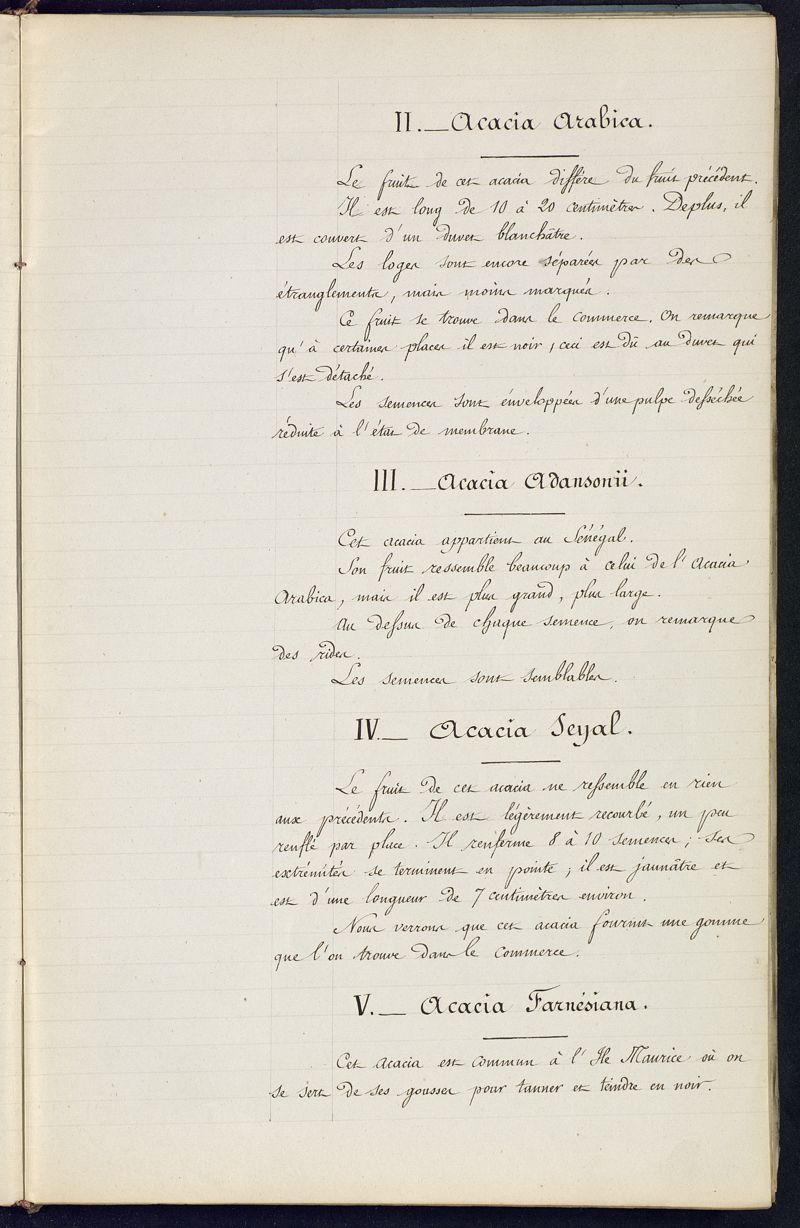 II. — Acacia Arabica.
Le fruit de cet acacia diffère du fruit précédent.
Il est long de 10 à 20 centimètres. De plus, il
est couvert d'un duvet blanchâtre.
Les loges sont encore séparées par des
étranglements, mais moins marqués.
Ce fruit se trouve dans le commerce. On remarque
qu'à certaines places il est noir, ceci est dû au duvet qui
s'est détaché.
Les semences sont énveloppées d'une pulpe desséchée
réduite à l'état de membrane.
III. — Acacia Adansonii.
Cet acacia appartient au Sénégal.
Son fruit ressemble beaucoup à celui de l'Acacia
Arabica, mais il est plus grand, plus large.
Au dessus de chaque semence, on remarque
des rides.
Les semences sont semblables.
IV. — Acacia Seyal.
Le fruit de cet acacia ne ressemble en rien
aux précédents. Il est légèrement recourbé, un peu
renflé par place. Il renferme 8 à 10 semences; ses
extrémités se terminent en pointe; il est jaunâtre et
est d'une longueur de 7 centimètres environ.
Nous verrons que cet acacia fournit une gomme
que l'on trouve dans le commerce.
V. — Acacia Farnésiana.
Cet Acacia est commun à l'Ile Maurice où on
se sert de ses gousses pour tanner et teindre en noir.